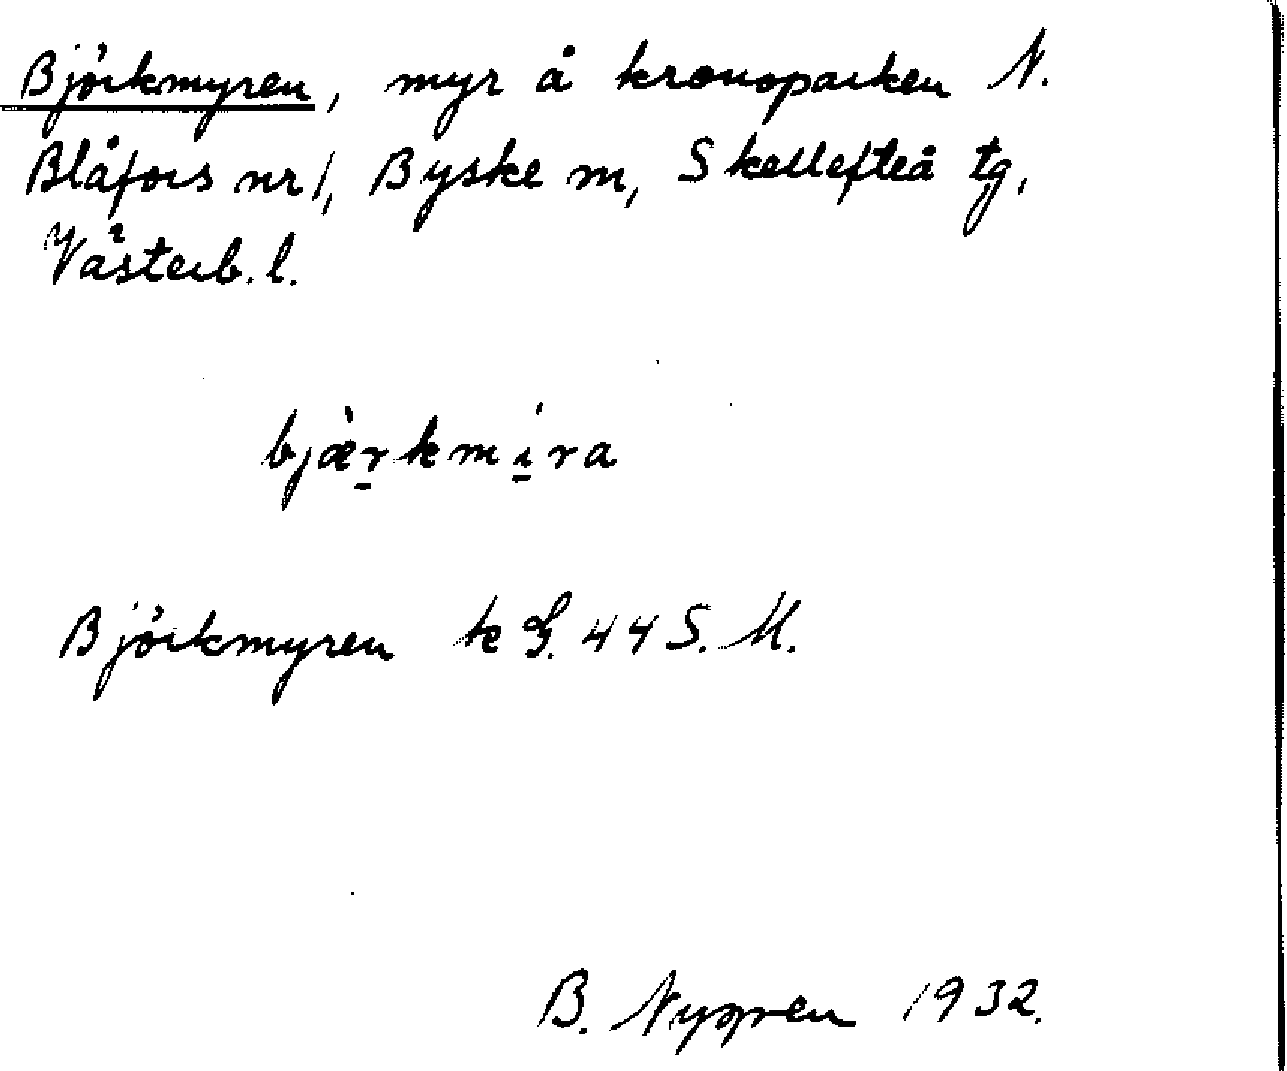 Björkmyren, myr å kronoparken N.
Blåfors nr 1, Byske sn, Skellefteå tg,
Västerb. l.
bjær̠kmi̠ra
Björkmyren k G. 44 S. M.
B. Nygren 1932.